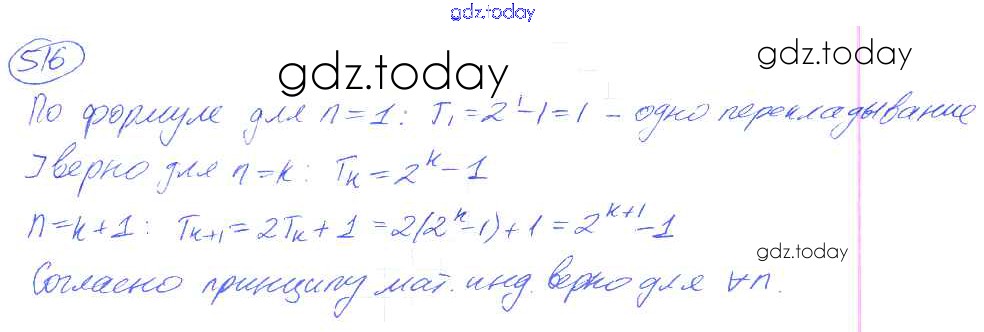 gdz.today
516
gdz.today
gdz.today
По формуле для n=1: T₁=2¹-1=1 - одно перекладывание
] верно для n=k: Tₖ=2ᵏ-1
n=k+1: Tₖ₊₁=2Tₖ+1=2(2ᵏ-1)+1=2ᵏ⁺¹-1
gdz.today
Согласно принципу мат. инд. верно для ∀n.